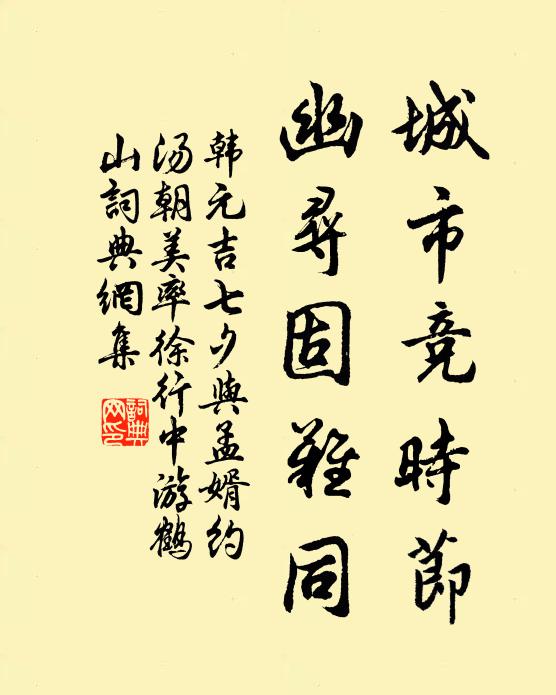 城市竞時節
幽尋固難同
韩元吉七夕與孟婿约
汤朝美率徐行中游鶴
山詞典網集
詞典網印